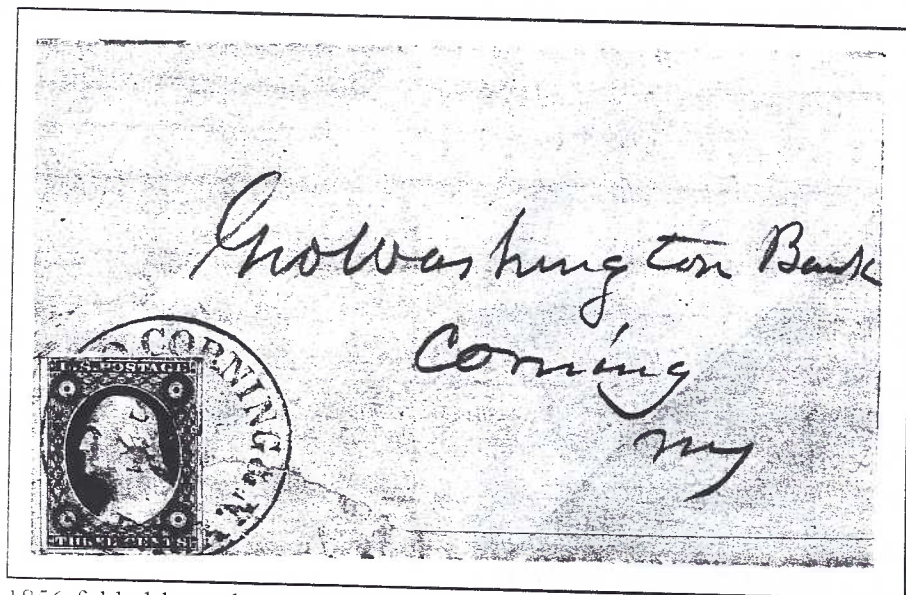 Geo Washington Bank
Corning
NY
CORNING N.Y.
U.S. POSTAGE
THREE CENTS
1856 folded